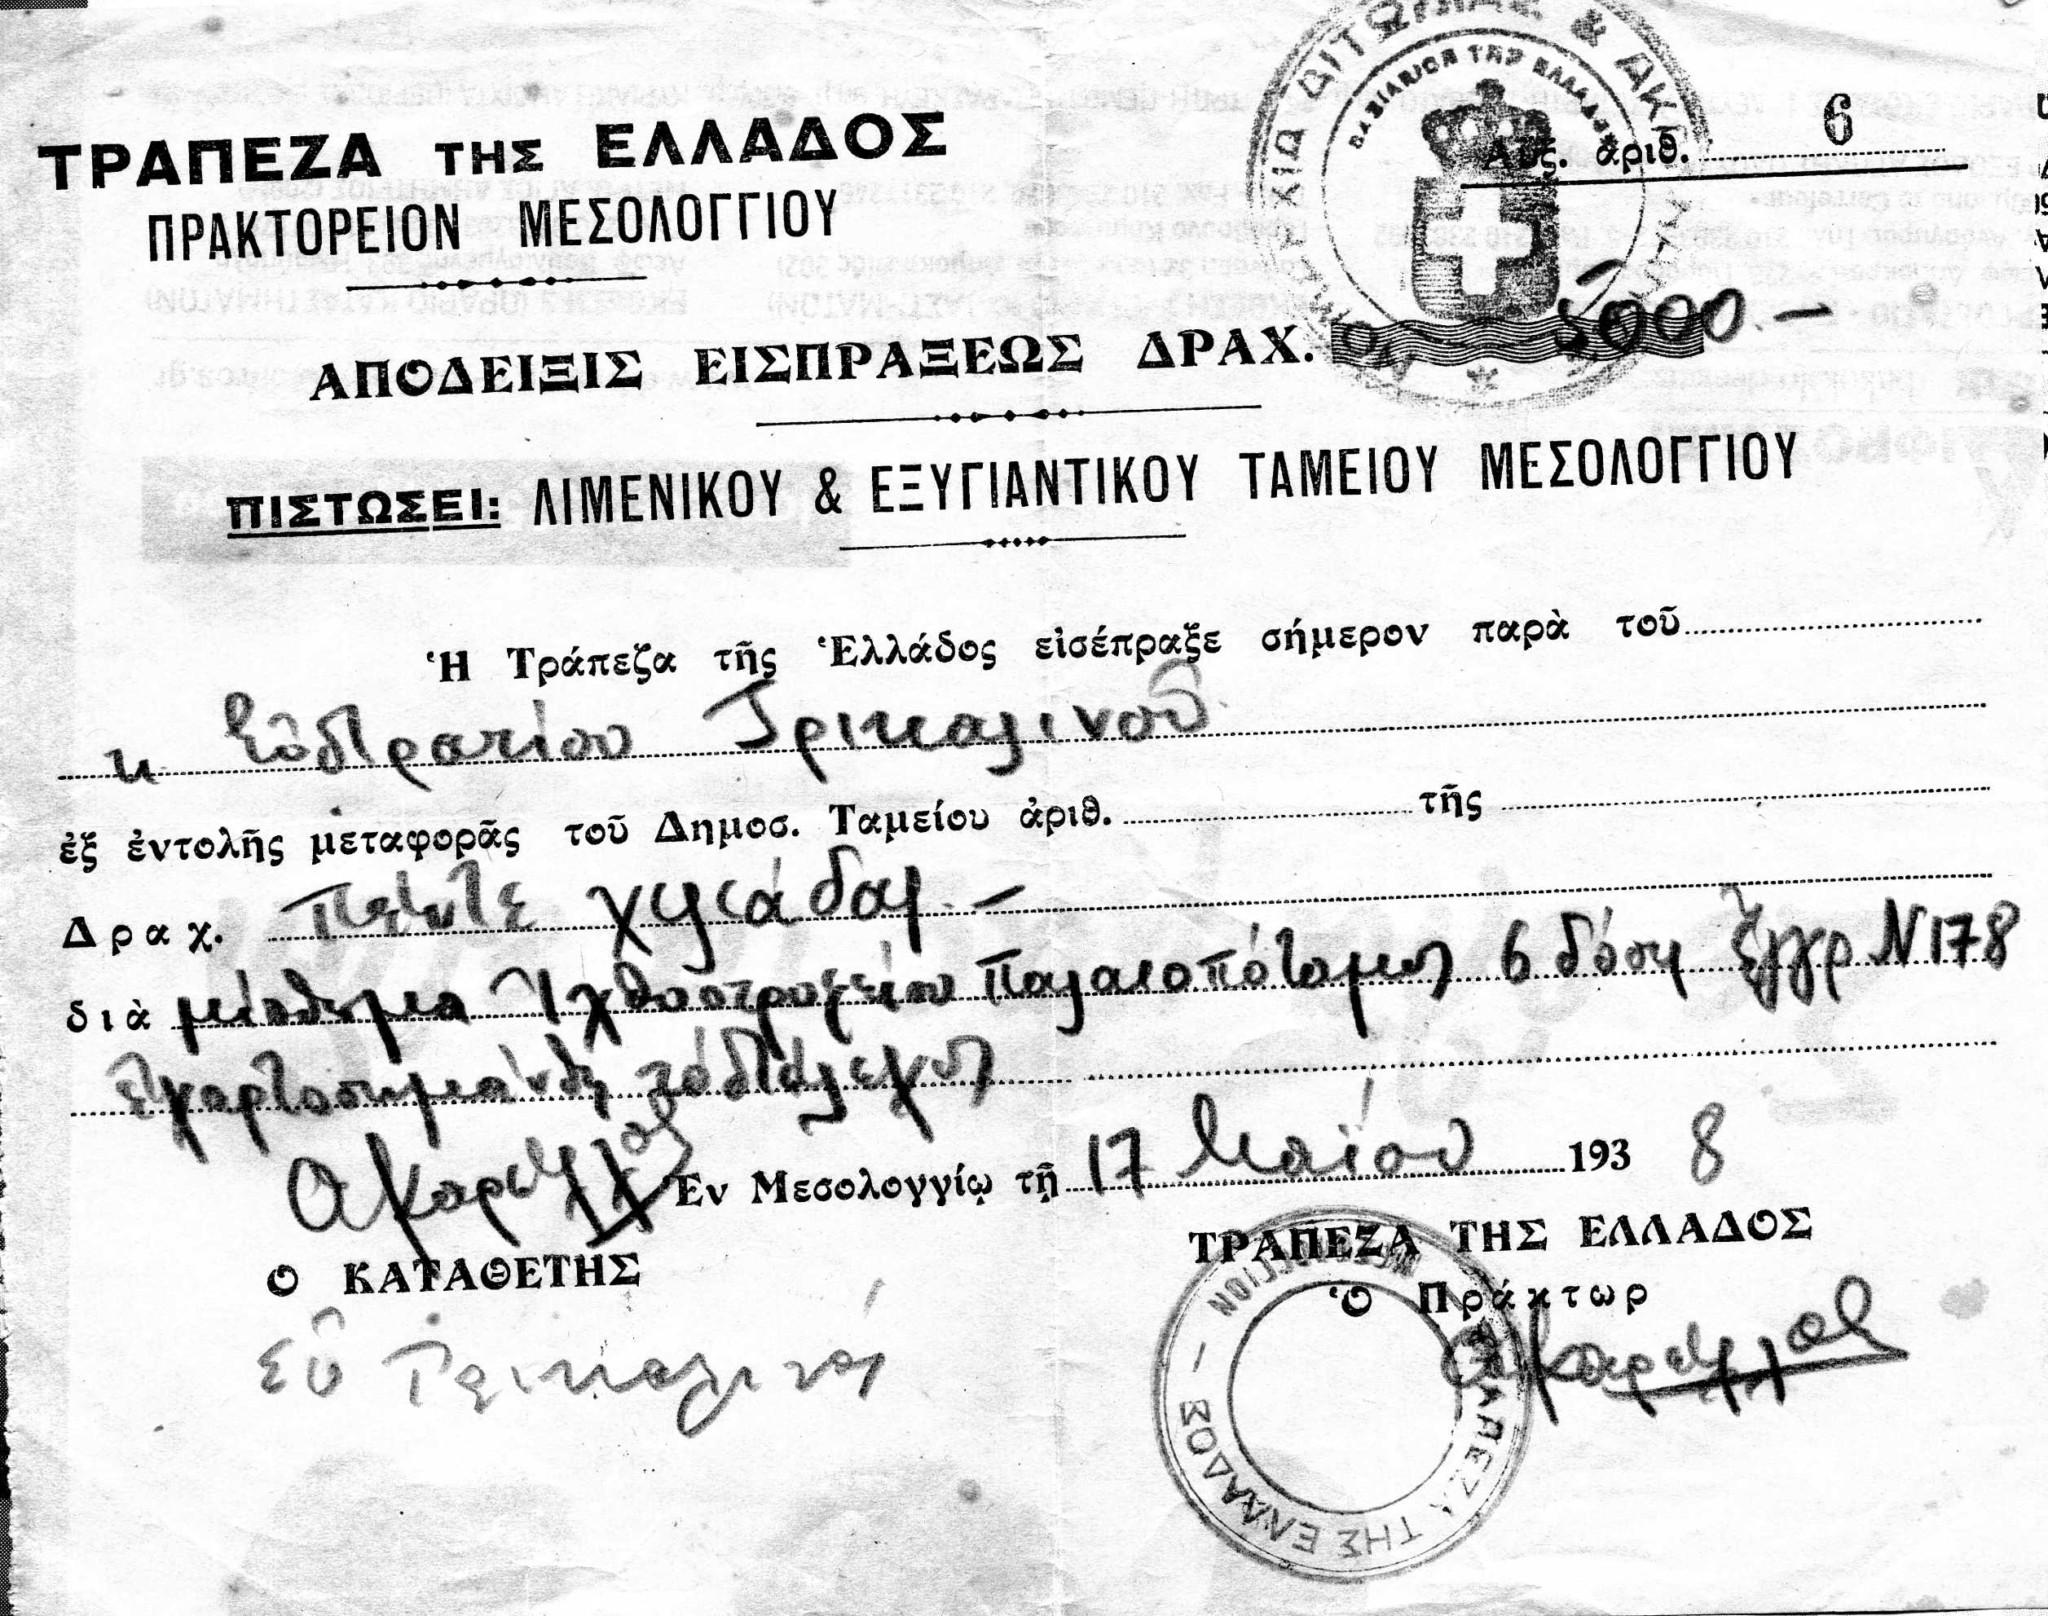 ΤΡΑΠΕΖΑ ΤΗΣ ΕΛΛΑΔΟΣ
ΠΡΑΚΤΟΡΕΙΟΝ ΜΕΣΟΛΟΓΓΙΟΥ
Αὔξ. ἀριθ. 6
ΒΑΣΙΛΕΙΟΝ ΤΗΣ ΕΛΛΑΔΟΣ
ΑΠΟΔΕΙΞΙΣ ΕΙΣΠΡΑΞΕΩΣ ΔΡΑΧ. 5000 –
ΠΙΣΤΩΣΕΙ: ΛΙΜΕΝΙΚΟΥ & ΕΞΥΓΙΑΝΤΙΚΟΥ ΤΑΜΕΙΟΥ ΜΕΣΟΛΟΓΓΙΟΥ
Ἡ Τράπεζα τῆς Ἑλλάδος εἰσέπραξε σήμερον παρὰ τοῦ
κ Εὐστρατίου Τρικαλινοῦ
ἐξ ἐντολῆς μεταφορᾶς τοῦ Δημοσ. Ταμείου ἀριθ. τῆς
Δραχ. Πέντε χιλιάδας –
διὰ μίσθωμα Ἰχθυοτροφείου Παλαιοπόταμος 6 δόση ἔγγρ Ν 178
Ἐν Μεσολογγίῳ τῇ 17 Μαΐου 1938
Ο ΚΑΤΑΘΕΤΗΣ
ΤΡΑΠΕΖΑ ΤΗΣ ΕΛΛΑΔΟΣ
Ὁ Πράκτωρ
Εὐ Τρικαλινός
ΤΡΑΠΕΖΑ ΤΗΣ ΕΛΛΑΔΟΣ